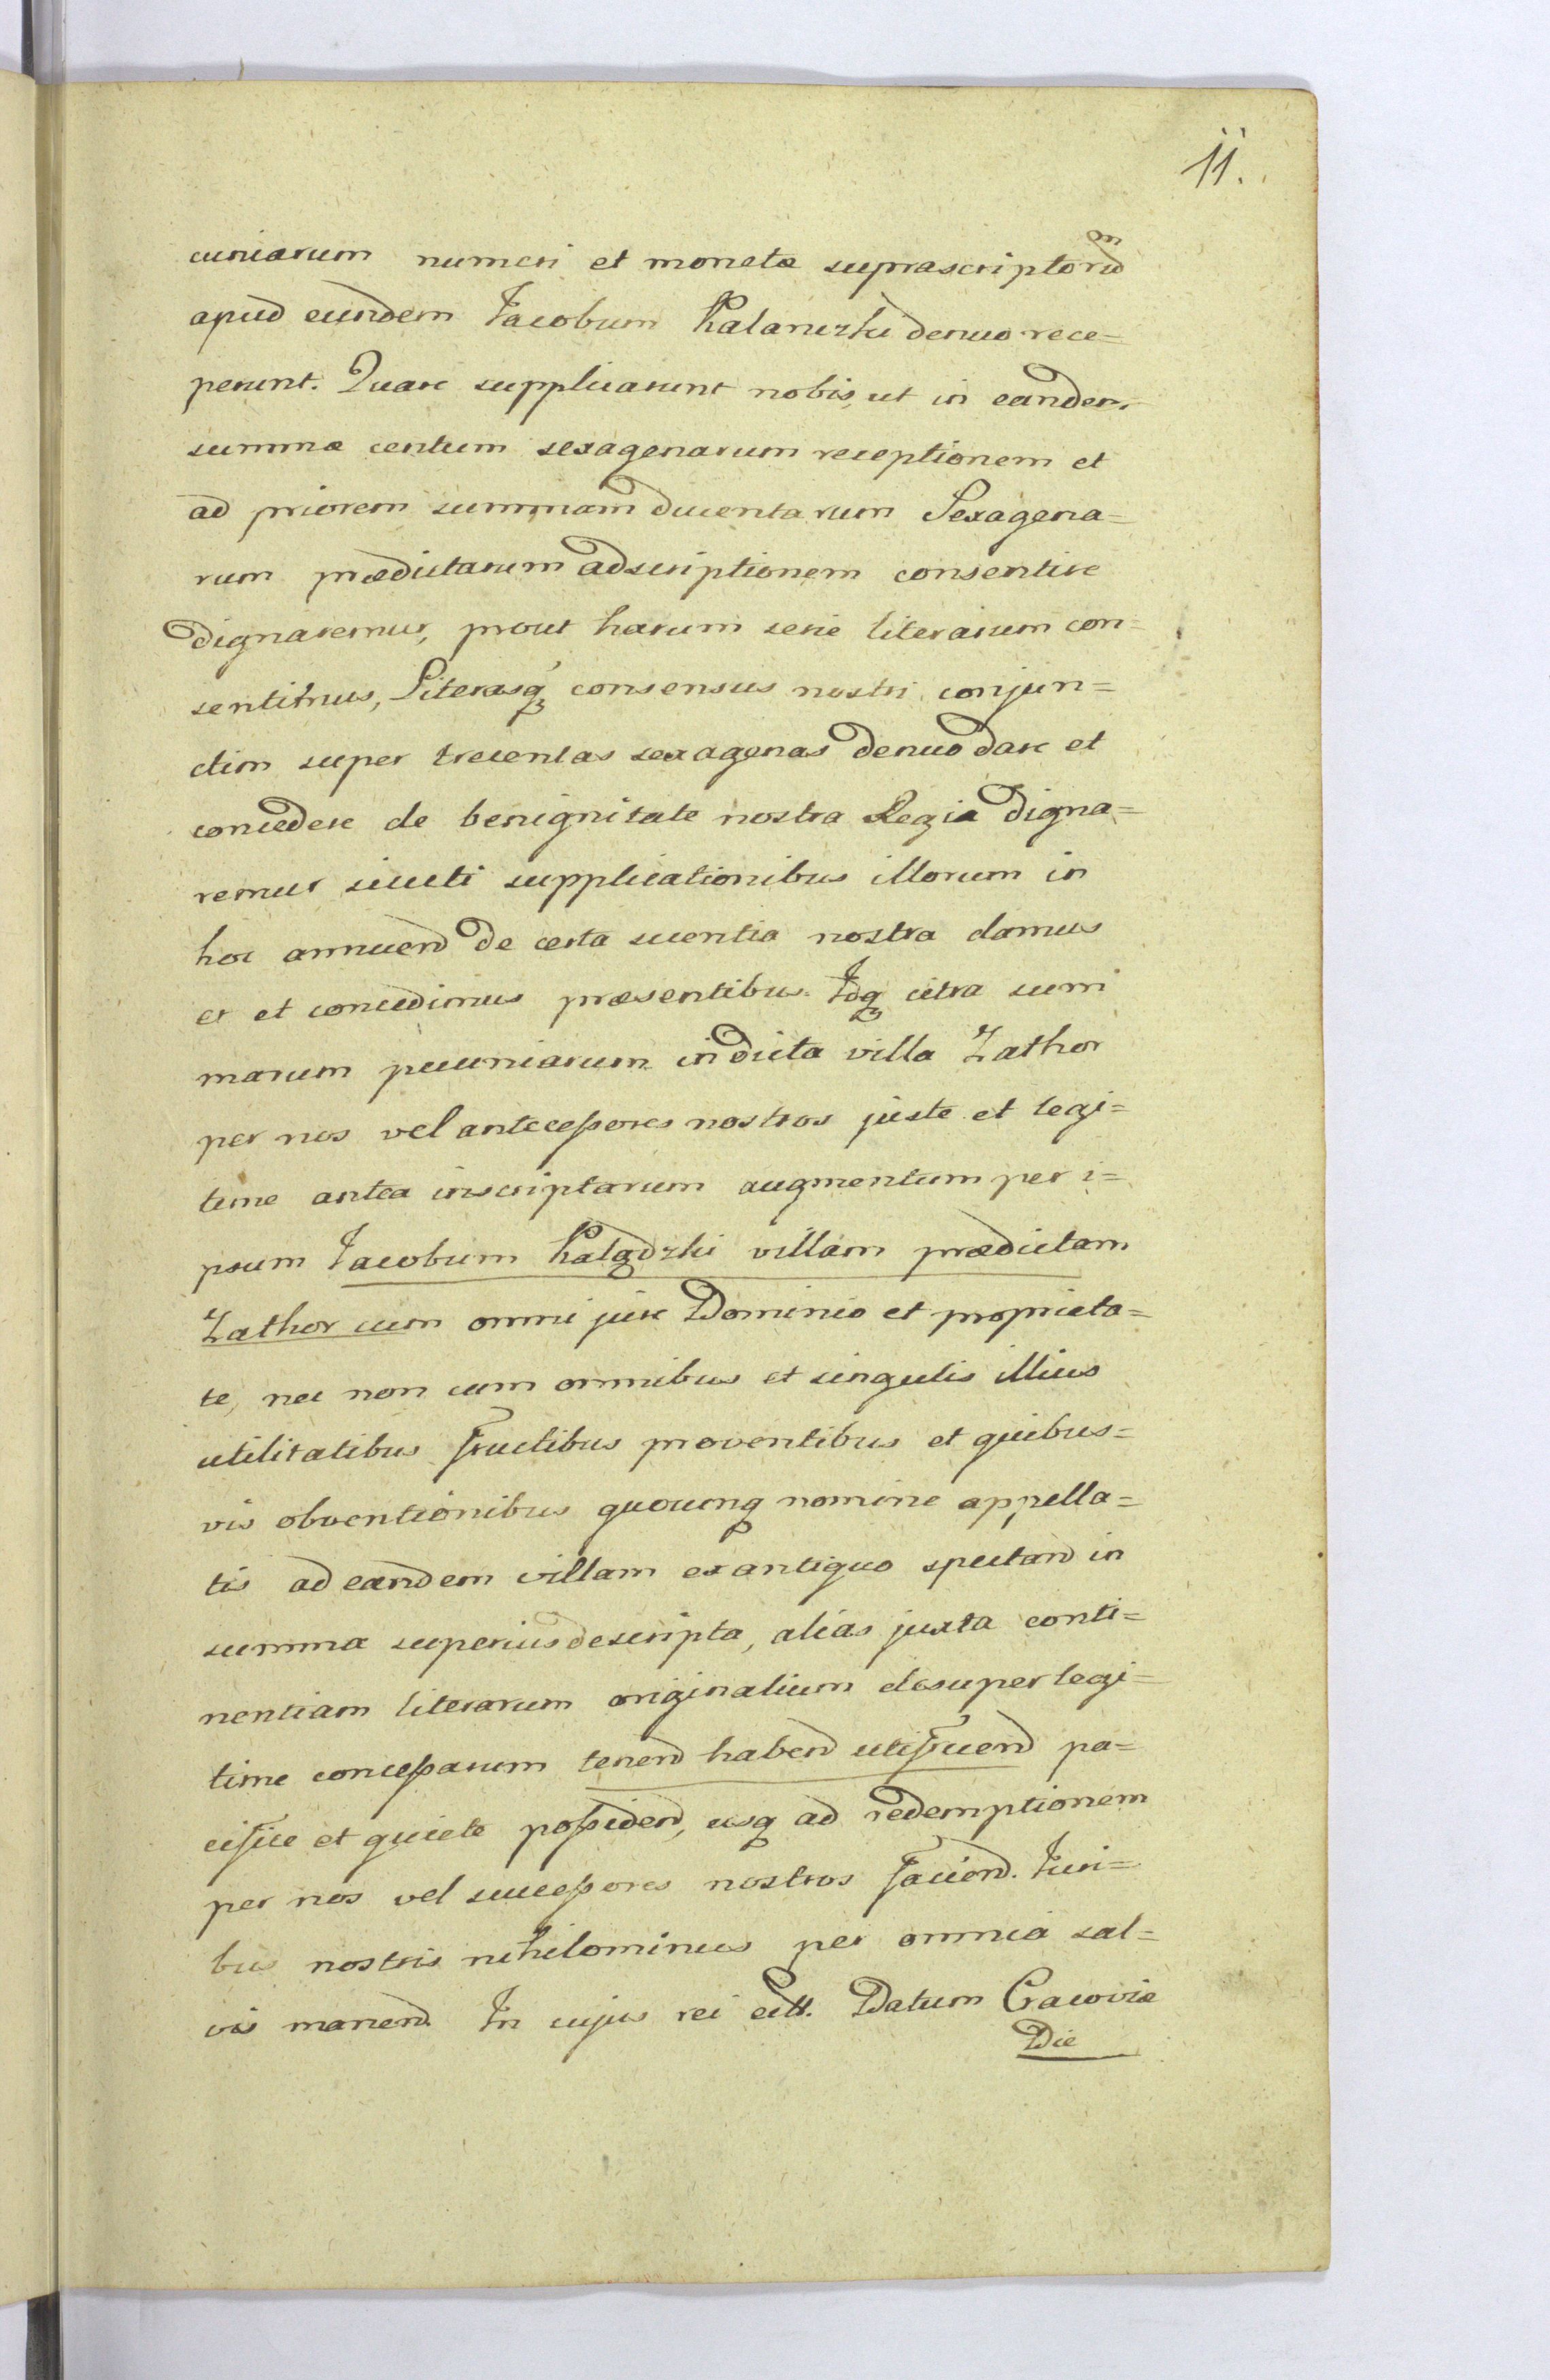 11.
cuniarum numeri et monetæ suprascriptorum
apud eundem Jacobum Kalanczki denuo rece=
perunt. Quare supplicarunt nobis, ut in eandem
summæ centum sexagenarum receptionem et
ad priorem summam ducentarum Sexagena=
rum prædictarum adscriptionem consentire
dignaremur, prout harum serie literarum con=
sentimus, Literasq consensus nostri conjun=
ctim super trecentas sexagenas denuo dare et
concedere de benignitate nostra Regia digna=
remur sicuti supplicationibus illorum in
hoc annuend de certa scientia nostra damus
et et concedimus præsentibus. Idq citra sum
marum pecuniarum in dicta villa Zathor
per nos vel antecessores nostros juste et legi=
time antea inscriptarum augmentum per i=
psum Jacobum Kalądzki villam prædictam
Zathor cum omni jure Dominio et proprieta=
te, nec non cum omnibus et singulis illius
utilitatibus fructibus proventibus et quibus=
vis obventionibus quocunq nomine appella=
tis ad eandem villam ex antiquo spectand in
summa superius descripta, alias juxta conti=
nentiam literarum originalium desuper legi=
time concessarum tenend habend utifruend pa=
cifice et quiete possidend, usq ad redemptionem
per nos vel successores nostros faciend. Juri=
bus nostris nihilominus per omnia sal=
vis manend. In cujus rei ett. Datum Cracoviæ
Die